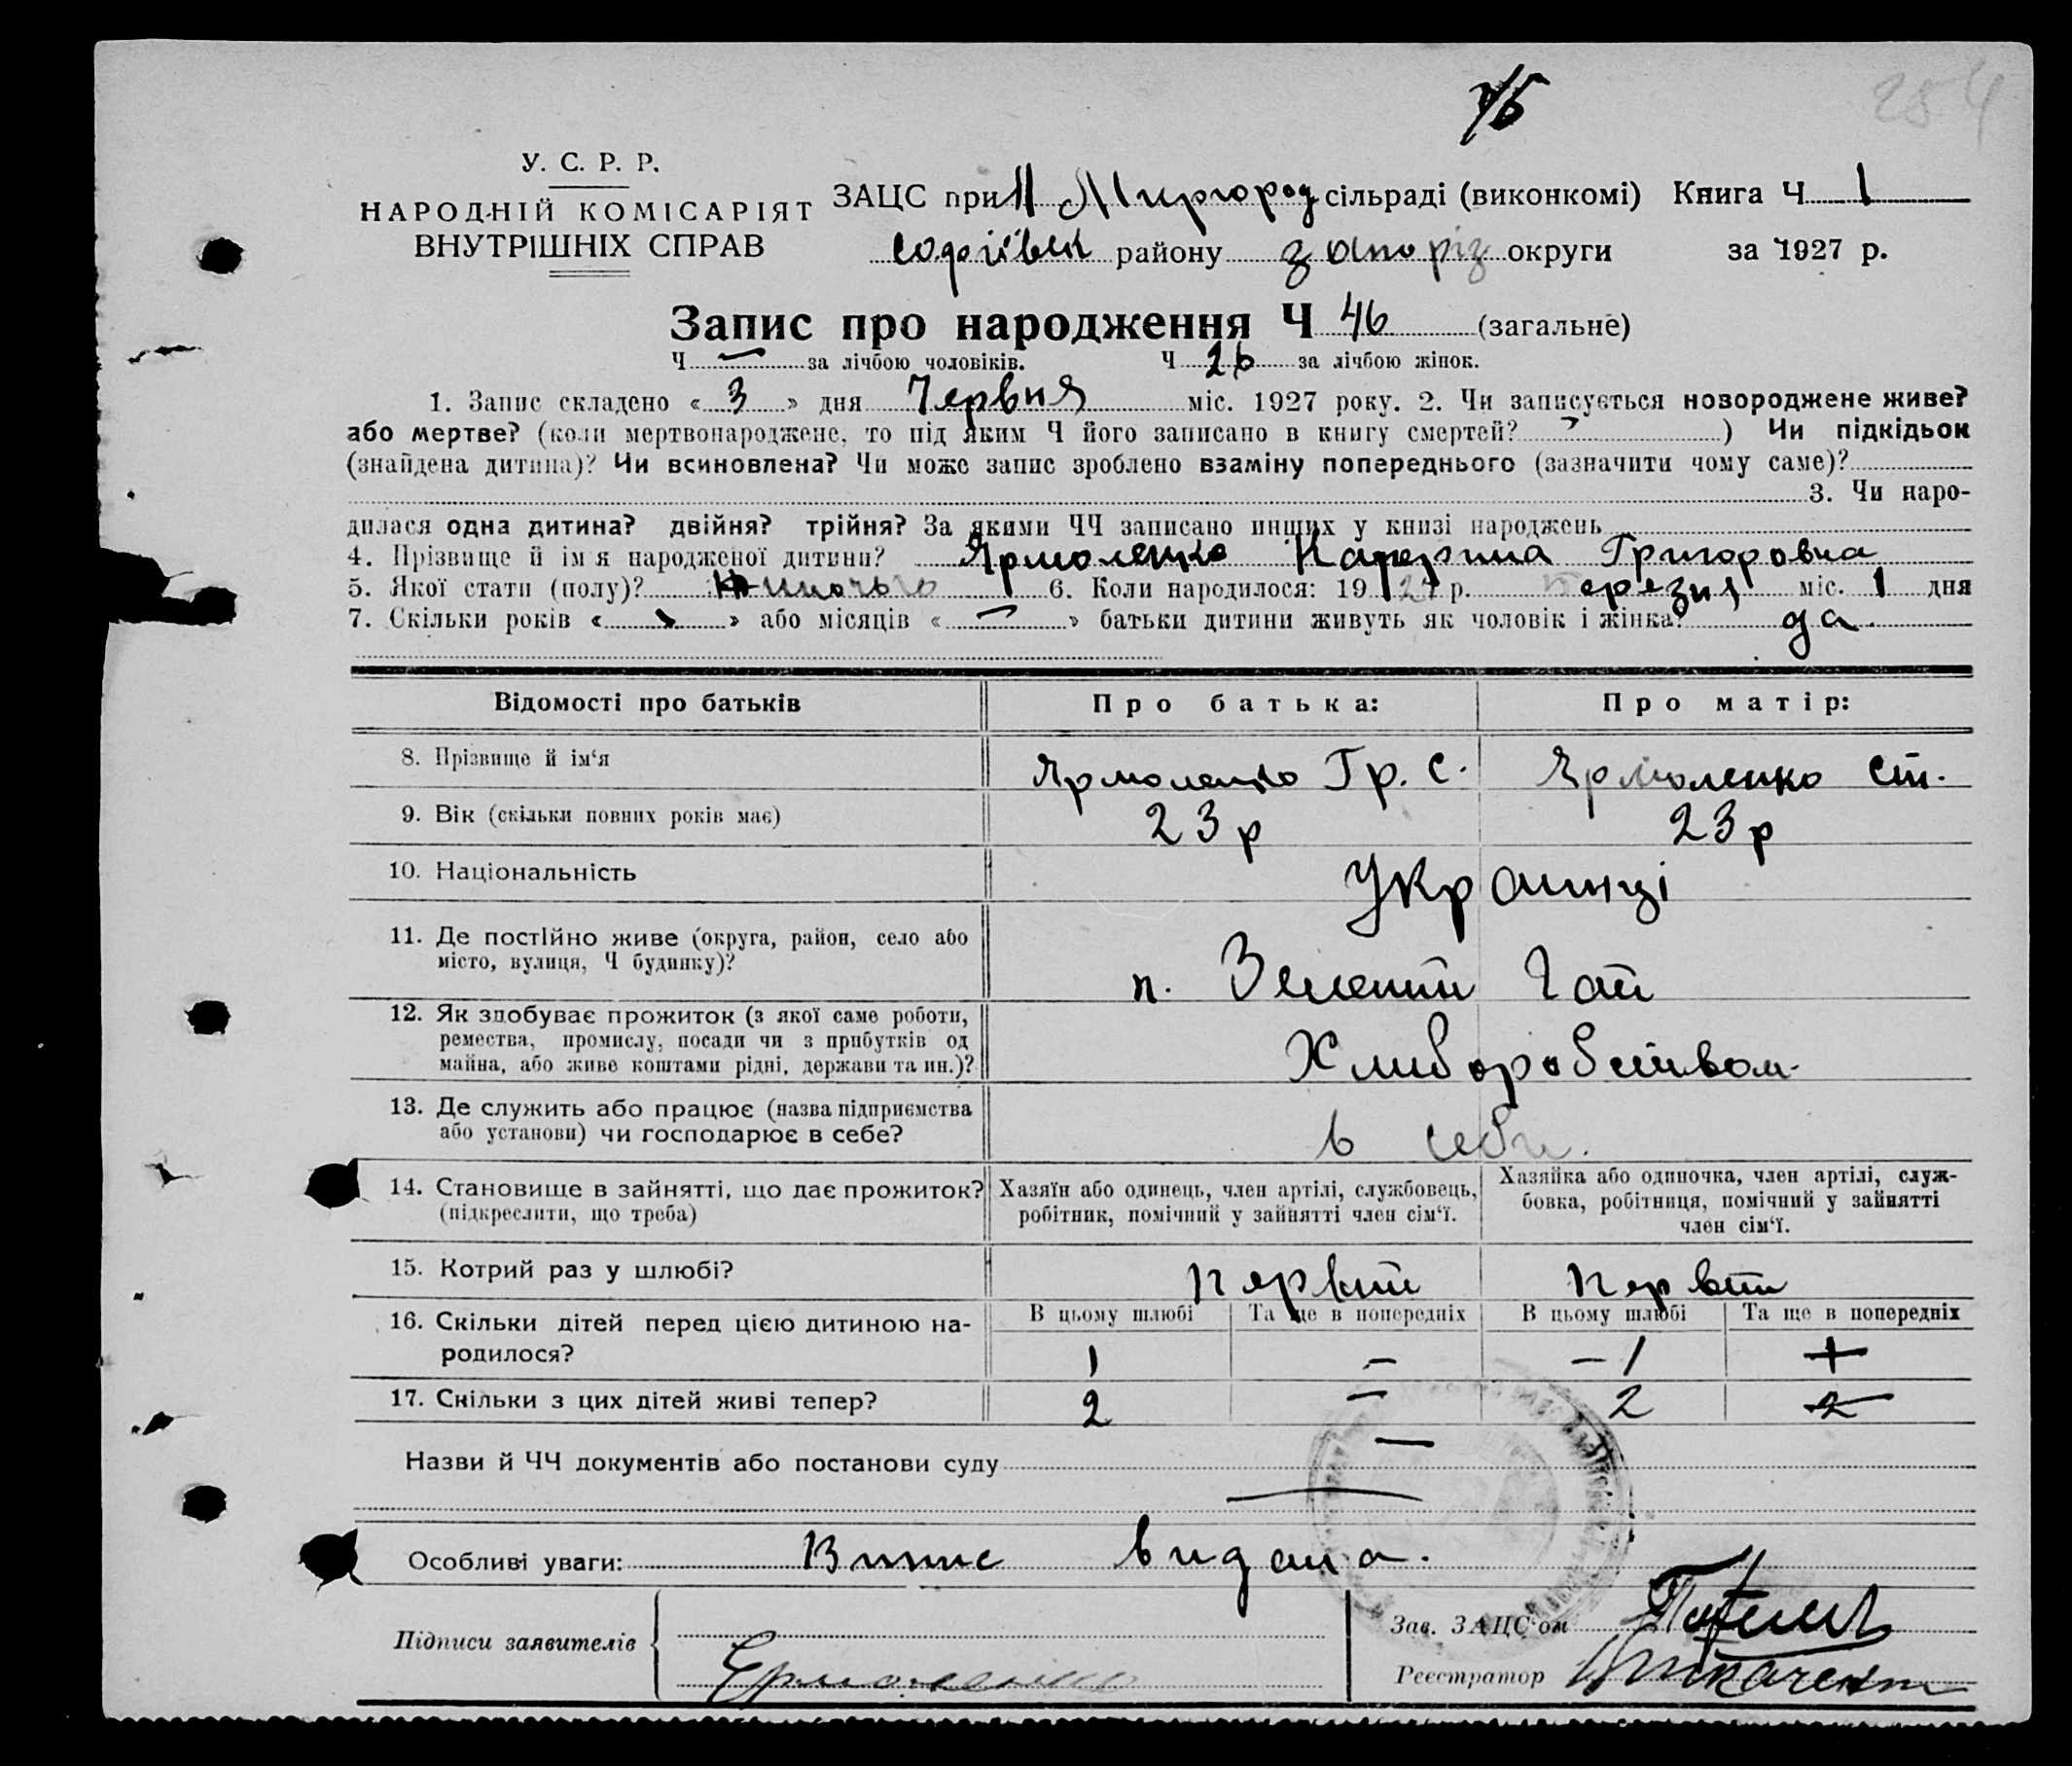 254
У. С. Р. Р.
НАРОДНІЙ КОМІСАРІЯТ
ВНУТРІШНІХ СПРАВ
ЗАЦС при Н Миргород сільраді (виконкомі) Книга Ч 1
софіївск району запоріз округи за 1927 р.
Запис про народження Ч 46 (загальне)
Ч — за лічбою чоловіків. Ч 26 за лічбою жінок.
1. Запис складено « 3 » дня Червня міс. 1927 року. 2. Чи записується новороджене живе?
або мертве? (коли мертвонароджене, то під яким Ч його записано в книгу смертей? ) Чи підкідьок
(знайдена дитина)? Чи всиновлена? Чи може запис зроблено взаміну попереднього (зазначити чому саме)?
3. Чи наро-
дилася одна дитина? двійня? трійня? За якими ЧЧ записано инших у книзі народжень
4. Прізвище й ім'я народженої дитини? Ярмоленко Григоровна
5. Якої стати (полу)? 6. Коли народилося: 1927 р. березня міс. 1 дня
7. Скільки років « » або місяців « — » батьки дитини живуть як чоловік і жінка? да.
Відомості про батьків Про батька: Про матір:
8. Прізвище й ім'я Ярмоленко Гр. С. Ярмоленко Ст.
9. Вік (скільки повних років має) 23 р 23 р
10. Національність Украинці
11. Де постійно живе (округа, район, село або
місто, вулиця, Ч будинку)? п. Зелений Гай
12. Як здобуває прожиток (з якої саме роботи,
ремества, промислу, посади чи з прибутків од
майна, або живе коштами рідні, держави та ин.)? Хлиборобством
13. Де служить або працює (назва підприємства
або установи) чи господарює в себе? в себе.
14. Становище в зайнятті, що дає прожиток?
(підкреслити, що треба)
Хазяїн або одинець, член артілі, службовець,
робітник, помічний у зайнятті член сім'ї.
Хазяйка або одиночка, член артілі, служ-
бовка, робітниця, помічний у зайнятті
член сім'ї.
15. Котрий раз у шлюбі? первий первий
16. Скільки дітей перед цією дитиною на-
родилося?
В цьому шлюбі Та ще в попередніх В цьому шлюбі Та ще в попередніх
1 — — 1
17. Скільки з цих дітей живі тепер? 2 — 2
Назви й ЧЧ документів або постанови суду —
Особливі уваги: Випис видана.
Підписи заявителів
Ермоленко
Зав. ЗАЦС'ом
Реєстратор